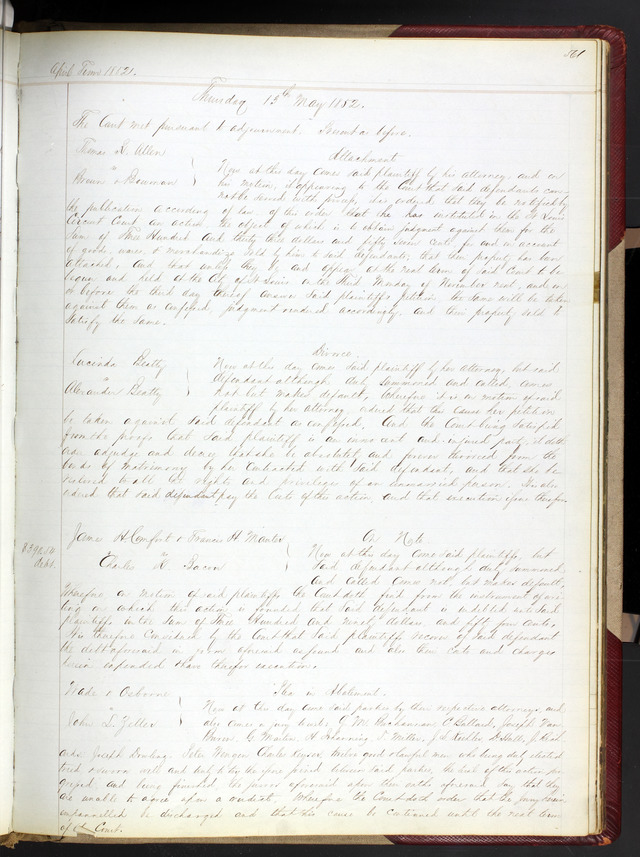 561
April Term 1852.
Thursday 13th May 1852.
The Court met pursuant to adjournment. Present as before.
Thomas L. Allen
vs
Brown & Bowman
Attachment
Now at this day comes said plaintiff by his Attorney, and on
his motion, it appearing to the Court that said defendants can
not be served with process, it is ordered that they be notified by
the publication according of law of this order that he has instituted in the St Louis
Circuit Court an action the object of which is to obtain judgment against them for the
sum of Three Hundred and thirty three dollars and fifty seven cents, for and on account
of goods, wares & merchandize sold by him to said defendants; that their property has been
attached, and that unless they be and appear at the next term of said Court to be
begun and held at the City of St Louis on the third Monday of November next, and on
or before the third day thereof answer said plaintiffs petition, the same will be taken
against them as confessed, judgment rendered accordingly, and their property sold to
satisfy the same.
Lucinda Beatty
vs
Alexander Beatty
Divorce
Now at this day comes said plaintiff by her attorney, but said
defendant although duly summoned and called, comes
not but makes default, Wherefore it is on motion of said
plaintiff by her attorney, ordered that the same her petition
be taken against said defendant as confessed, And the Court being satisfied
from the proofs that said plaintiff is an innocent and injured party, it doth
order adjudge and decree that she be absolutely and forever divorced from the
bonds of Matrimony by her contracted with said defendant, and that she be
restored to all the rights and privileges of an unmarried person. It is also
ordered that said defendant pay the Costs of this action, and that execution issue therefor.
James H Comfort & Francis H. Manter
vs
Charles K. Bacon
$390.54
debt.
On Note
Now at this day come said plaintiffs, but
said defendant although duly summoned
and called comes not, but makes default,
Wherefore on motion of said plaintiffs the Court doth find from the instrument of wri-
ting on which this action is founded that said defendant is indebted unto said
plaintiffs in the sum of Three Hundred and ninety dollars, and fifty four cents,
It is therefore Considered by the Court that said plaintiffs recover of said defendant
the debt aforesaid in form aforesaid as found and also their costs and charges
herein expended and have therefor execution.
Wade & Osborne
vs
John L. Zeller
Plea in Abatement.
Now at this day come said parties by their respective attorneys, and
also comes a jury to wit; C. Ballard, Joseph Van
G. Martin, H
Joseph Peter Wenger, Charles Keyser, twelve good & lawful men who being duly elected
tried & sworn well and truly to try the issue joined between said parties, the trial of this action pro-
gressed and being finished the jurors aforesaid upon their oaths aforesaid say that they
are unable to agree upon a verdict. Wherefore the Court doth order that the jury herein
empannelled be discharged and that this cause be continued until the next term
of this Court.